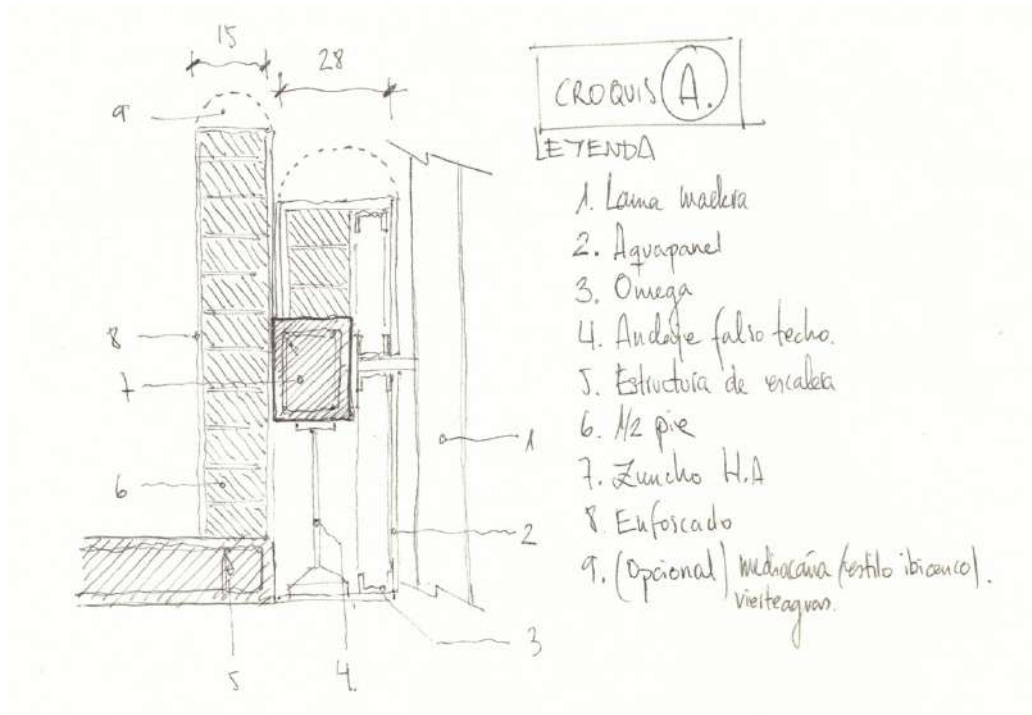 15
28
CROQUIS A.
LEYENDA
1. Lama madera
2. Aquapanel
3. Omega
4. Anclaje falso techo.
5. Estructura de escalera
6. 1/2 pie
7. Zuncho H.A
8. Enfoscado
9. (Opcional) mediacaña (estilo ibicenco).
vierteaguas.
9
8
7
1
6
2
3
5
4.